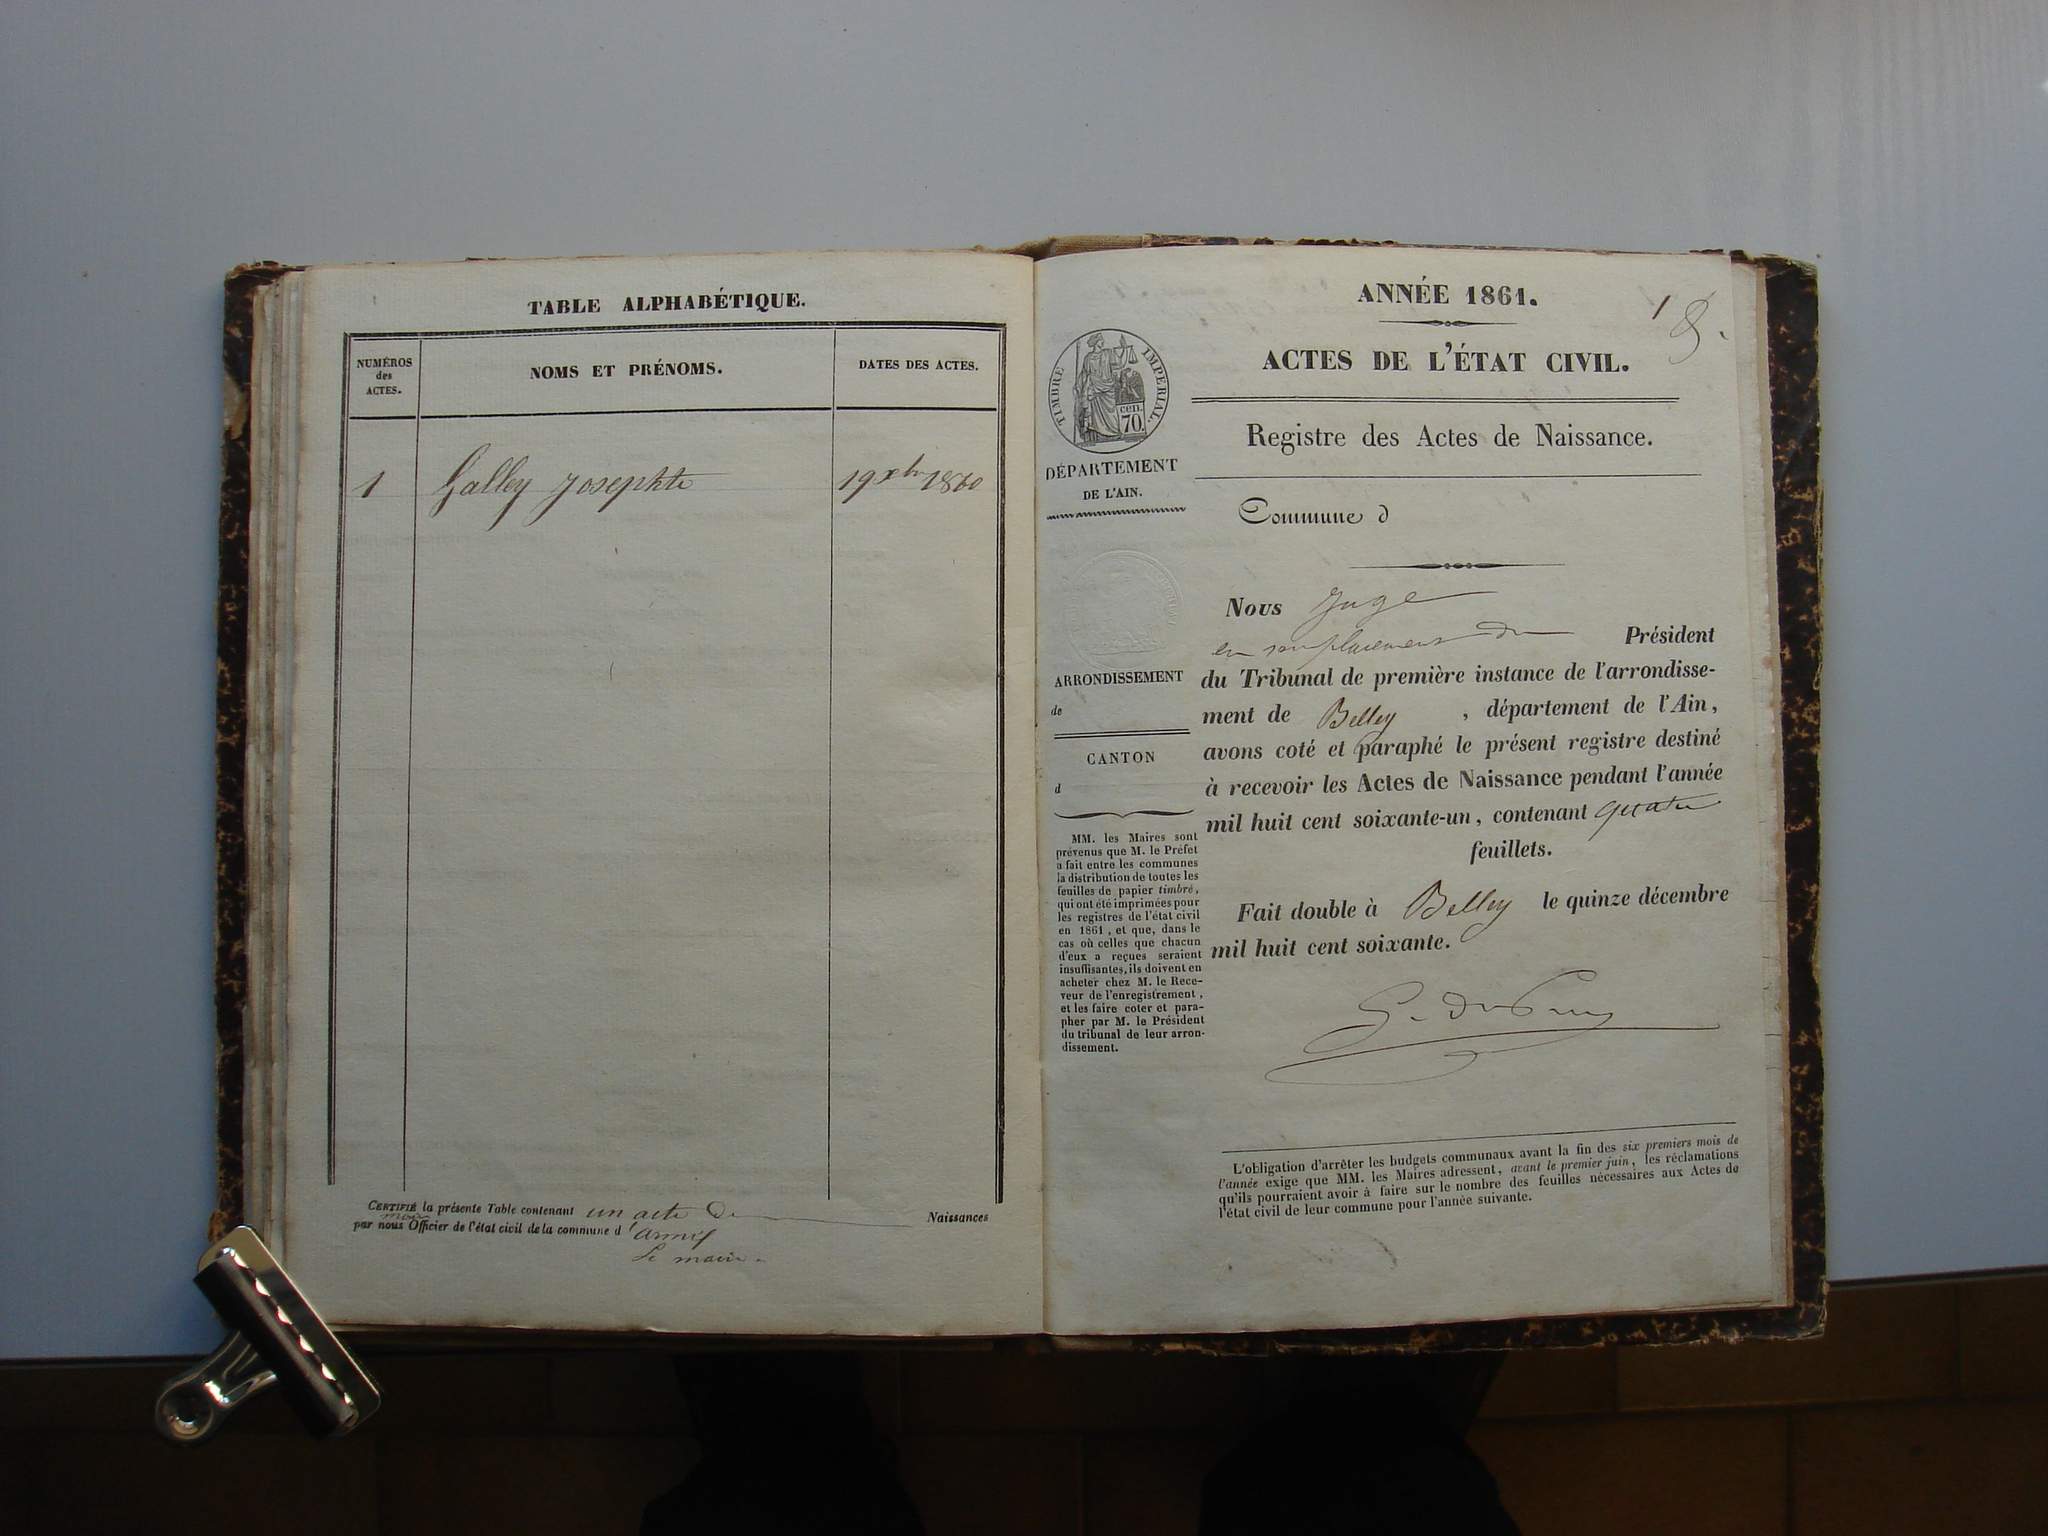 TABLE ALPHABÉTIQUE.
NUMÉROS
des
ACTES.
NOMS ET PRÉNOMS.
DATES DES ACTES.
1 Galley Josephte 19 xbre 1860
CERTIFIÉ la présente Table contenant un acte de Naissances
par nous Officier de l'état civil de la commune d'
Le maire.
ANNÉE 1861.
1
ACTES DE L'ÉTAT CIVIL.
Registre des Actes de Naissance.
TIMBRE IMPERIAL.
cen.
70.
DÉPARTEMENT
DE L'AIN.
Commune d
Nous Juge
en remplacement du Président
du Tribunal de première instance de l'arrondisse-
ment de Belley, département de l'Ain,
avons coté et paraphé le présent registre destiné
à recevoir les Actes de Naissance pendant l'année
mil huit cent soixante-un, contenant quatre
feuillets.
Fait double à Belley le quinze décembre
mil huit cent soixante.
ARRONDISSEMENT
de
CANTON
d
MM. les Maires sont
prévenus que M. le Préfet
a fait entre les communes
la distribution de toutes les
feuilles de papier timbré,
qui ont été imprimées pour
les registres de l'état civil
en 1861, et que, dans le
cas où celles que chacun
d'eux a reçues seraient
insuffisantes, ils doivent en
acheter chez M. le Rece-
veur de l'enregistrement,
et les faire coter et para-
pher par M. le Président
du tribunal de leur arron-
dissement.
L'obligation d'arrêter les budgets communaux avant la fin des six premiers mois de
l'année exige que MM. les Maires adressent, avant le premier juin, les réclamations
qu'ils pourraient avoir à faire sur le nombre des feuilles nécessaires aux Actes de
l'état civil de leur commune pour l'année suivante.